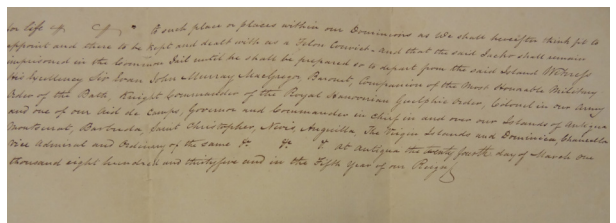 for life &c &c. To such place or places within our Dominions as We shall hereafter think fit to
appoint and there to be kept and dealt with as a Felon Convict - And that the said Jacko shall remain
imprisoned in the Common Jail until he shall be prepared so to depart from the said Island Witness
His Excellency Sir Evan John Murray MacGregor, Baronet, Companion of the Most Honorable Military
Order of the Bath, Knight Commander of the Royal Hanoverian Guelphic Order, Colonel in our Army
and one of our Aid de Camps, Governor and Commander in Chief in and over our Islands of Antigua
Montserrat, Barbuda, Saint Christopher, Nevis, Anguilla, The Virgin Islands and Dominica, Chancellor
Vice Admiral and Ordinary of the same &c &c &c at Antigua the twenty fourth day of March one
thousand eight hundred and thirtyfive and in the Fifth Year of our Reign